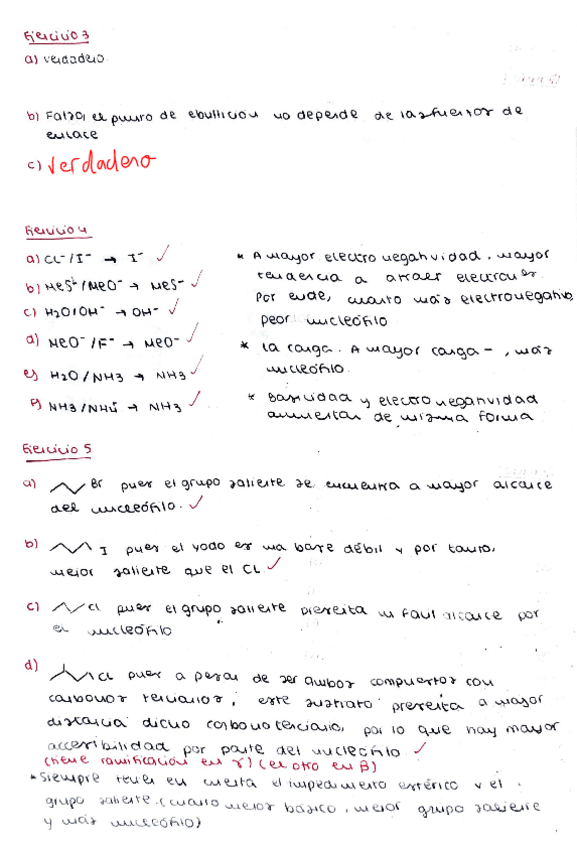 Ejercicio 3
a) verdadero.
b) Falso, el punto de ebullición no depende de las fuerzas de
enlace
c) verdadero
Ejercicio 4
a) Cl⁻/I⁻ → I⁻ ✓
* A mayor electronegatividad, mayor
tendencia a atraer electrones.
Por ende, cuanto más electronegativo,
peor nucleófilo
b) MeS⁻/MeO⁻ → MeS⁻ ✓
c) H2O/OH⁻ → OH⁻ ✓
d) MeO⁻/F⁻ → MeO⁻ ✓
* La carga. A mayor carga -, más
nucleófilo.
e) H2O/NH3 → NH3 ✓
f) NH3/NH4 → NH3 ✓
* Basicidad y electronegatividad
aumentan de misma forma
Ejercicio 5
a) Br pues el grupo saliente se encuentra a mayor alcance
del nucleófilo. ✓
b) I pues el yodo es una base débil y por tanto,
mejor saliente que el CL ✓
c) Cl pues el grupo saliente presenta un fácil alcance por
el nucleófilo
d) Cl pues a pesar de ser ambos compuestos con
carbonos terciarios, este sustrato presenta a mayor
distancia dicho carbono terciario, por lo que hay mayor
accesibilidad por parte del nucleófilo ✓
(tiene ramificación en γ) (el otro en β)
* Siempre tener en cuenta el impedimento estérico y el
grupo saliente. (cuanto menos básico, mejor grupo saliente
y más nucleófilo)